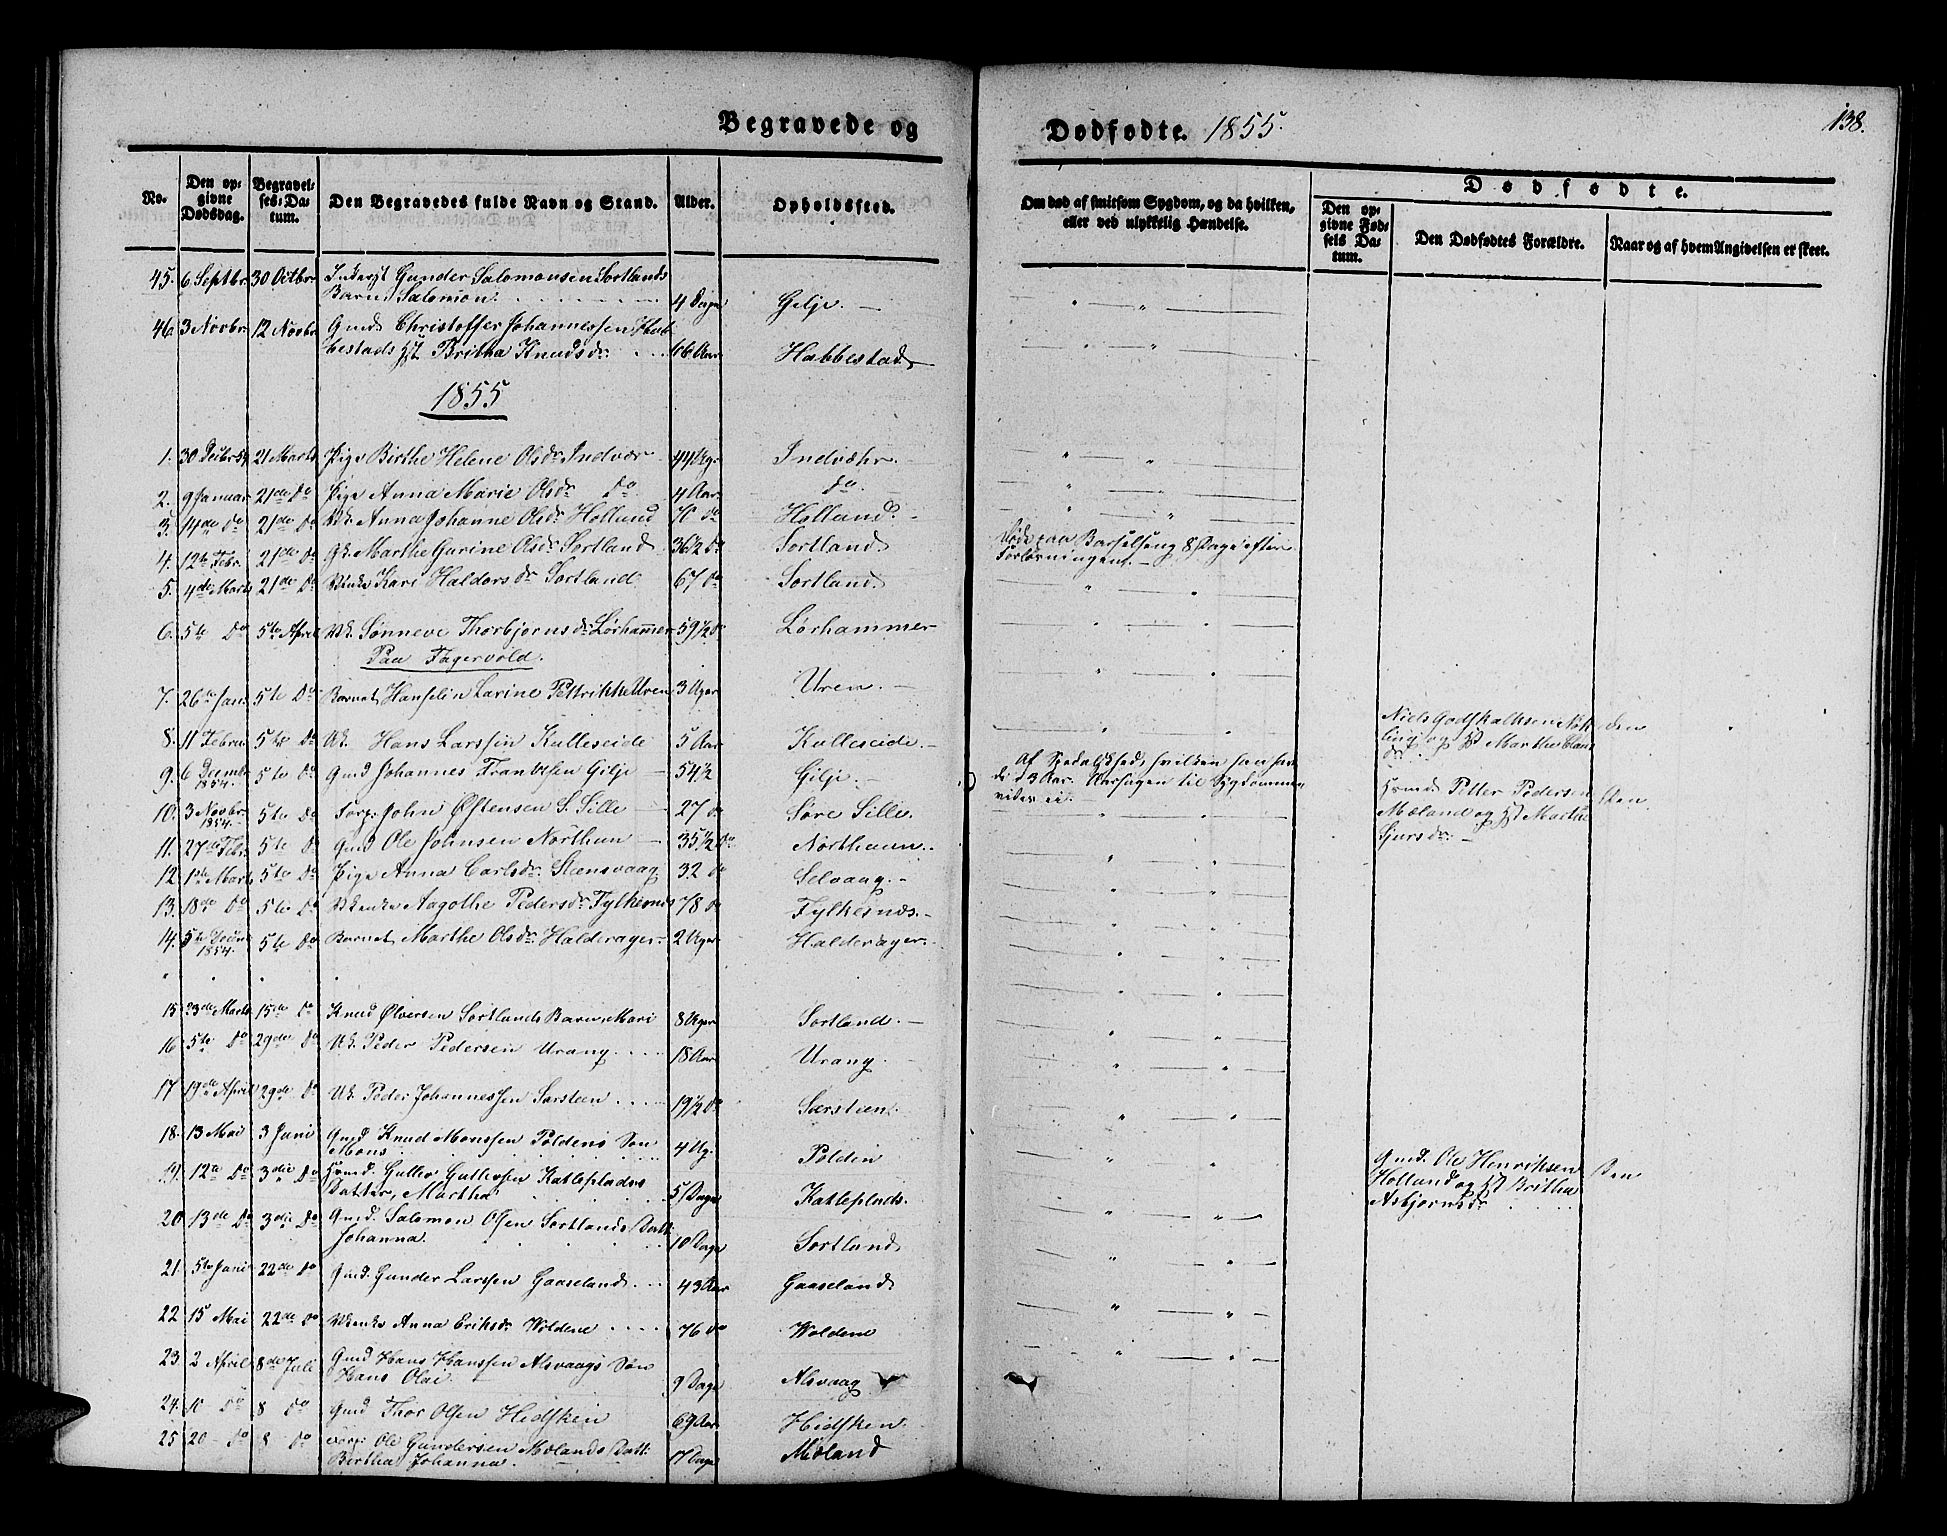 Begravede og
Dødfødte. 1855.
138.
No.
Den op-
givne
Dødsdag.
Begravel-
ses-Da-
tum.
Den Begravedes fulde Navn og Stand.
Alder.
Opholdssted.
Om død af smitsom Sygdom, og da hvilken,
eller ved ulykkelig Hændelse.
Dødfødte.
Den op-
givne Fød-
sels Da-
tum.
Den Dødfødtes Forældre.
Naar og af hvem Angivelsen er skeet.
45. 6 Septbr. 30 Octbr. Gunder Salomonsen Sortlands
Barn Salomon 4 Dage Gilje.
46. 3 Novbr 12 Novbr Gmd Christoffer Johannessen Hab-
bestads Britha Knudsdr. 66 Aar Habbestad
1855
1. 30 Decbr 54 21 Marts Pige Birthe Helene Olsdr. Indvær 44 Indvæhr.
2. 9 Januar 21de Do Pige Anna Marie Olsdr. Do 4 Aar Do.
3. 14de Do 21de Do Anna Johanne Olsdr. Hollund Do Holland.
4. 12te Febr. 21de Do Marthe Gurine Olsdr. Sortland 36 1/2 Do Sortland. Døde paa Barselseng 8 Dage efter
Forløsningen.
5. 4de Marts 21de Do Enke Kari Haldorsdr Sortland 67 Do Sortland.
6. 5te Do 5te April Sønneve Thorbjørnsdr. Lørhammer 59 1/2 Do Lørhammer
Paa Fagervold.
7. 26te Jan. 5te Do Barnet Hanselin Larine Pettrikke Uren 3 Uger Uren.
8. 11 Februar 5te Do Uk. Hans Larssen Kulleseide 5 Aar Kulleseide. Niels Godskalksen
og Marthe
9. 6 Decembr 1854 5te Do Gmd Johannes Frantsen Gilje 54 1/2 Gilje. Af Spedalskhed, hvilken han hav-
de i 3 Aar. Aarsagen til Sygdommen
vides ei.
10. 3 Novbr. 1854 5te Do John Østensen S. Sille 27 Do Søre Sille. Petter Pedersen
Mæland og Marthe
Sjursdr.
11. 27de Febr. 5te Do Gmd Ole Johnsen Northun 35 1/2 Do Northuun.
12. 1ste Marts 5te Do Pige Anna Carlsdr. Stensvaag 32 Do Selvaag.
13. 18de Do 5te Do Enke Aagothe Pedersdr. Fylkesnæs 78 Do Fylkesnæs.
14. 5te Decbr 1854. 5te Do Barnet Marthe Olsdr. Halderager 2 Uger Halderager.
15. 23de Marts 15de Do Knud Ølversen Sortlands Barn Mari 8 Uger Sortland.
16. 5te Do 29de Do Uk. Peder Pedersen Urang 18 Aar Urang.
17. 19de April 29de Do Uk. Peder Johannessen Sarsteen 19 1/2 Do Særsteen.
18. 13 Mai 3 Juni Gmd Knud Monssen Poldens Søn
Mons 4 Ug. Polden
19. 12te Do 3die Do Gullev Gullevsen Katleplads
Datter, Martha 5 Dage Katleplads. Gmd. Ole Henriksen
Holland og Britha
Asbjørnsdr.
20. 13de Do 3die Do Gmd. Salomon Olsen Sortlands Datt.
Johanna. 10 Dage Sortland
21. 5te Juni 22de Do Gmd. Gunder Larssen Gaaseland 43 Aar Gaaseland
22. 15 Mai 22de Do Enke Anna Eriksdr. Woldene 76 Do Woldene
23. 2 April 8de Juli Gmd Hans Hanssen Alsvaags Søn
Hans Olai 9 Dage Alsvaag
24. 10 Do 8 Do Gmd Thor Olsen Hidsken 69 Aar Hidsken
25. 20 Do 8 Do Ole Gundersen Mælands Datt:
Birtha Johanna. 17 Dage Mæland